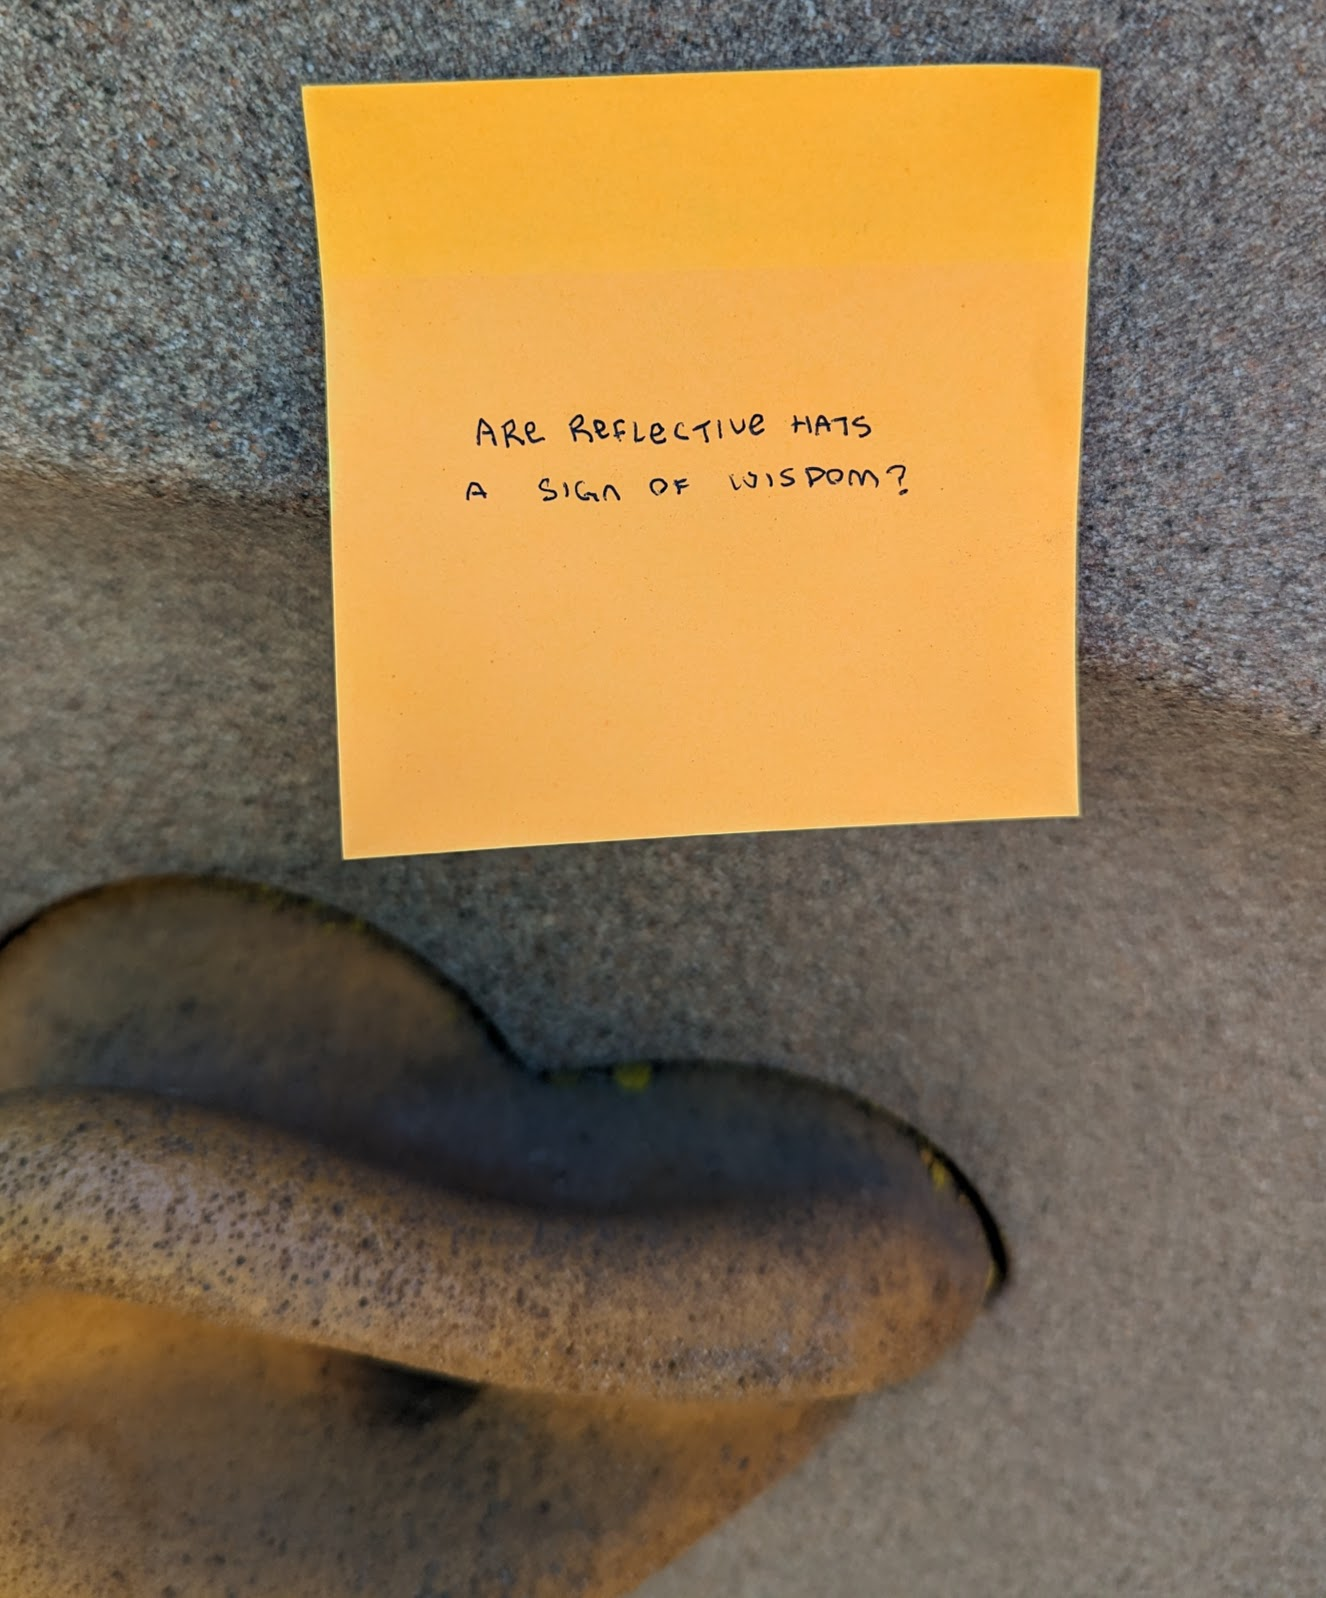 ARE REFLECTIVE HATS
A SIGN OF WISDOM?